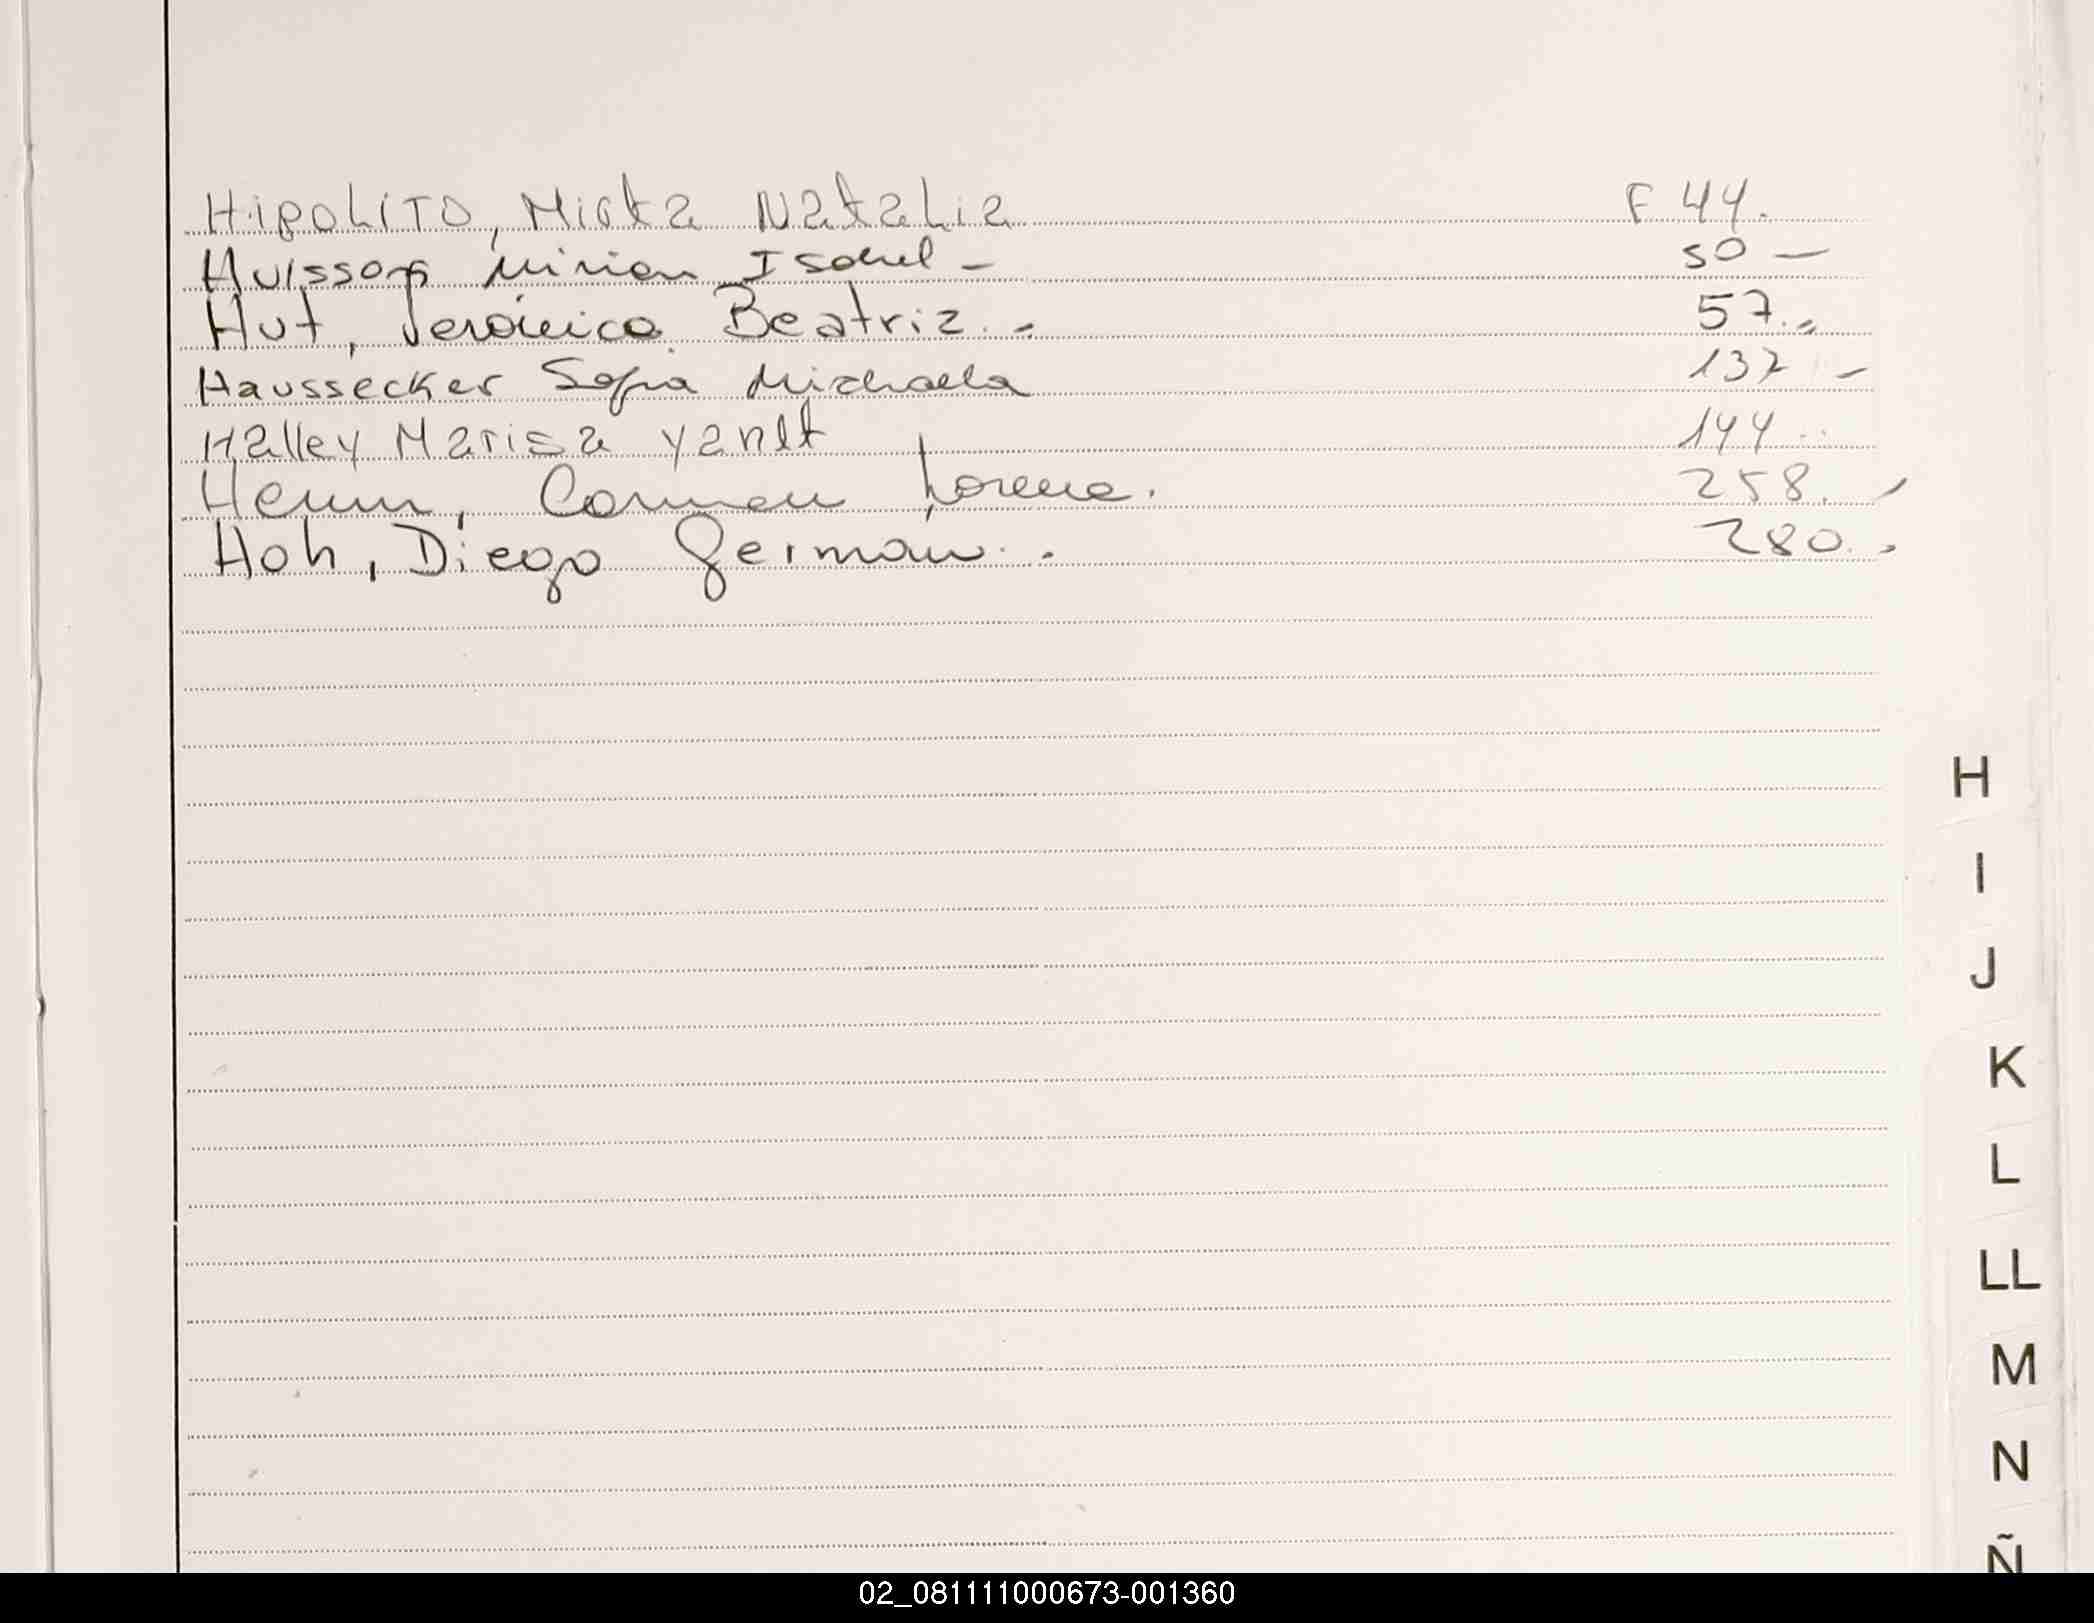 Hipolito, Mirta Natalia F 44.
Huisson Mirian Isabel - 50 -
Hut, Veronica Beatriz.- 57.-
Haussecker Sofia Michaela 137 -
Halley Marisa Yanet 144 -
Henn, Carmen Lorena. 258. -
Hoh, Diego German.. 280.-
H
I
J
K
L
LL
M
N
Ñ
02_081111000673-001360